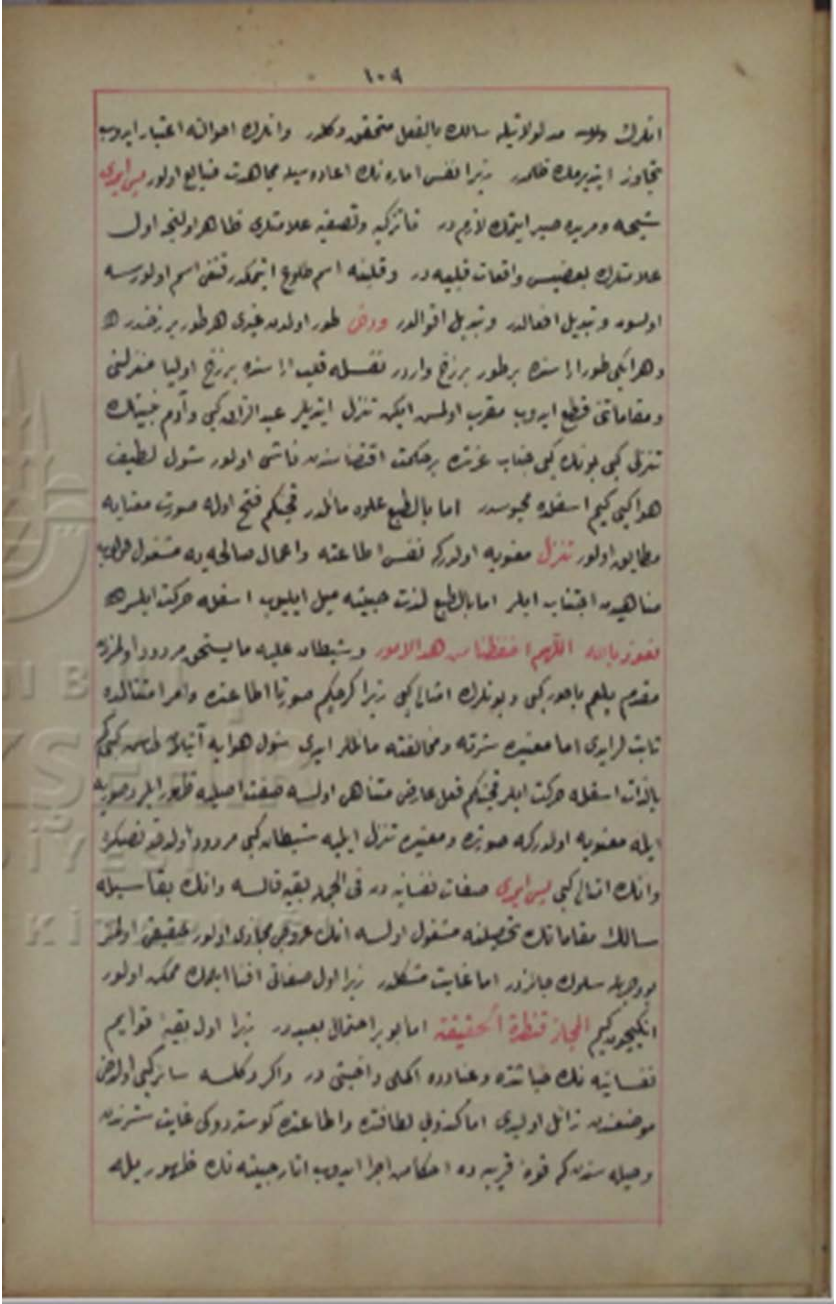 ١٠٩
انلرك مدلولاتيله سالك بالفعل متحقق دكلدر وانلرك احوالنه اعتبار ايدوب
تجاوز ايتديرمك ظلمدر زيرا نفس اماره نك اعاده سيله مجاهدت ضايع اولور پس ايمدى
شيخه ومريده صبر ايتمك لازم در تا تزكيه وتصفيه علامتلرى ظاهر اولنجه اول
علامتلرك بعضيسى واقعات قلبيه در وقلبنه اسم طلوع ايتمكدر قنغى اسم اولورسه
اولسون وتبديل افعالدر وتبديل اقوالدر طور اولدن غيرى هر طور برزخدر
وهر ايكى طور اراسنده بر طور برزخ واردر نفسله قلب اراسنده برزخ اوليا منزلتى
ومقاماتى قطع ايدوب مقرب اولمش ايكن تنزل ايتديلر عبد الرزاق كبى وآدم نبينك
تنزلى كبى بونك كبى جناب عزتده بر حكمت اقتضاسندن ناشى اولور شول لطيف
هوا كبى كيم اسفلده محبوسدر اما بالطبع علوه مائلدر قچنكم فتح اوله صورت معنايه
مطابق اولور تنزل معنويه اولدركه نفس اطاعته واعمال صالحه يه مشغول اولوب
مناهيدن اجتناب ايلر اما بالطبع لذت خبيثه ميل ايليوب اسفله حركت ايلر
نعوذ بالله اللهم احفظنا من هذا الامور وشيطان عليه ما يستحق مردود اولمزدن
مقدم بلعم باعور كبى وبونلرك امثالى كبى زيرا كرچكم صورتا اطاعتده وامر امتثالده
ثابتلر ايدى اما معنيده شرته ومخالفته مائللر ايدى شول هوايه آتيلان طاش كبى كم
بالذات اسفله حركت ايلر قچنكم فعل عارض متناهى اولسه صفت اصليه ظهور ايلر وصوريه
ايله معنويه اولدركه صورتده ومعنيده تنزل ايليه شيطان كبى مردود اولدقدنصكره
وانك امثالى كبى پس ايمدى صفات نفسانيه در فى الجمله بقيه قالسه وانك بقاسيله
سالك مقاماتك تحصيلنه مشغول اولسه انك عروجى مجازى اولور حقيقى اولمز
بو وجهله سلوك جائزدر اما غايت مشكلدر زيرا اول صفاتى افنا ايلمك ممكن اولور
انكيچون كيم المجاز قنطرة الحقيقة اما بو بر احتمال بعيددر زيرا اول بقيه قوايم
نفسانيه نك خباثتده وعنادده اكملى واخبثى در واكر دكلسه سائر كبى اولدخى
موضعندن زائل اوليدى اما كندوبى لطافتده واطاعتده كوستردوكى غايت شرندن
وحيله سندن كم قوه قريبه ده احكامن اجرا ايدوب اثار خبيثه نك ظهوريله